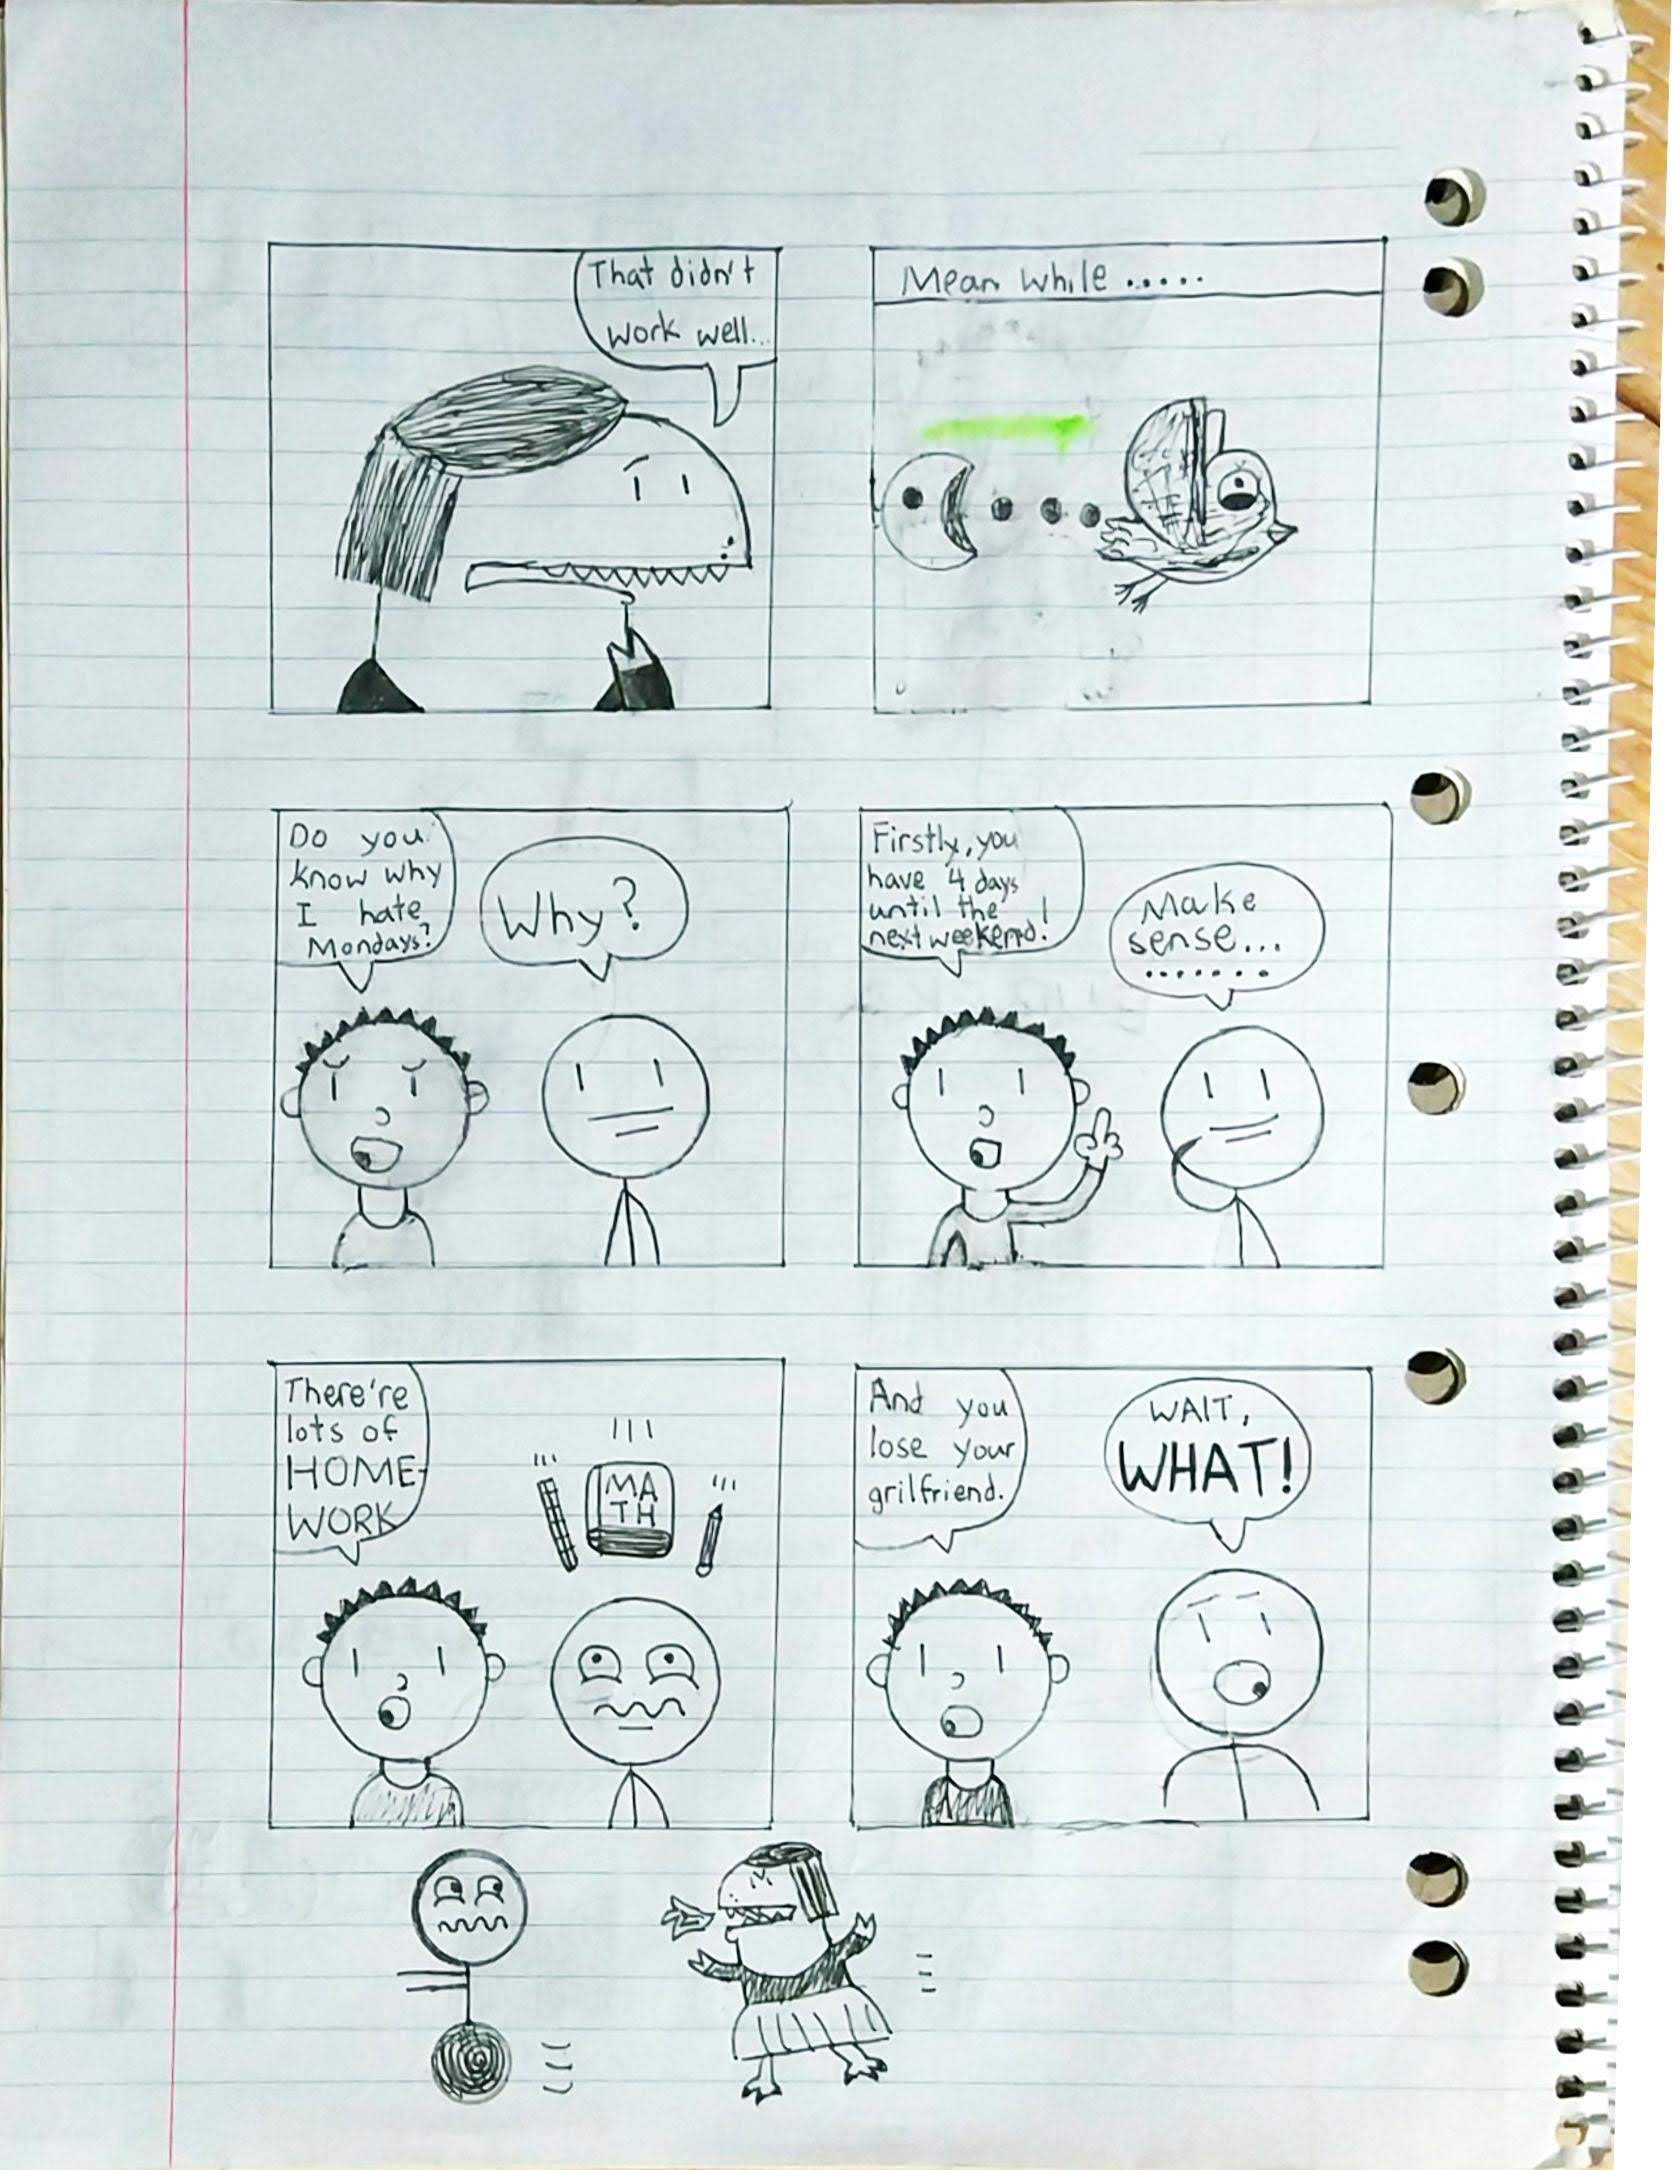 That didn't
work well...
Mean while .....
Do you
know why
I hate
Mondays?
Why?
Firstly, you
have 4 days
until the
next weekend!
Make
sense...
.......
There're
lots of
HOME-
WORK
MA
TH
And you
lose your
grilfriend.
WAIT,
WHAT!